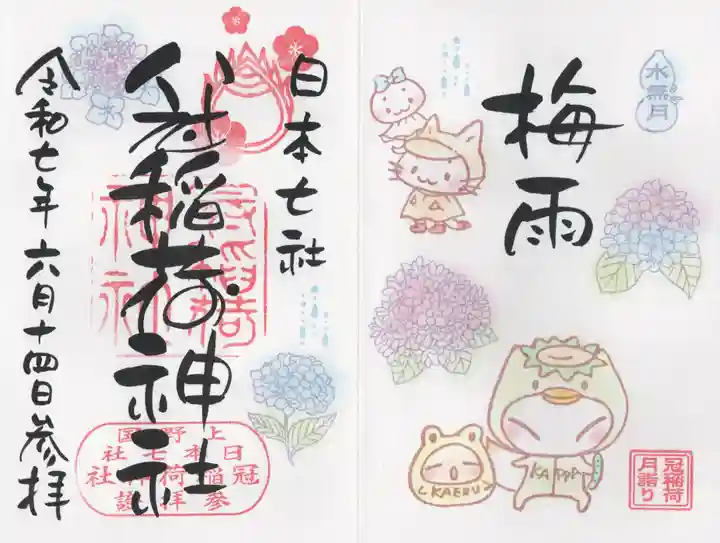 水無月
梅雨
KAERU
KAPPA
冠稲荷
月詣り
日本七社
稲荷神社
令和七年六月十四日参拝
上野国
日本七社
冠稲荷神社